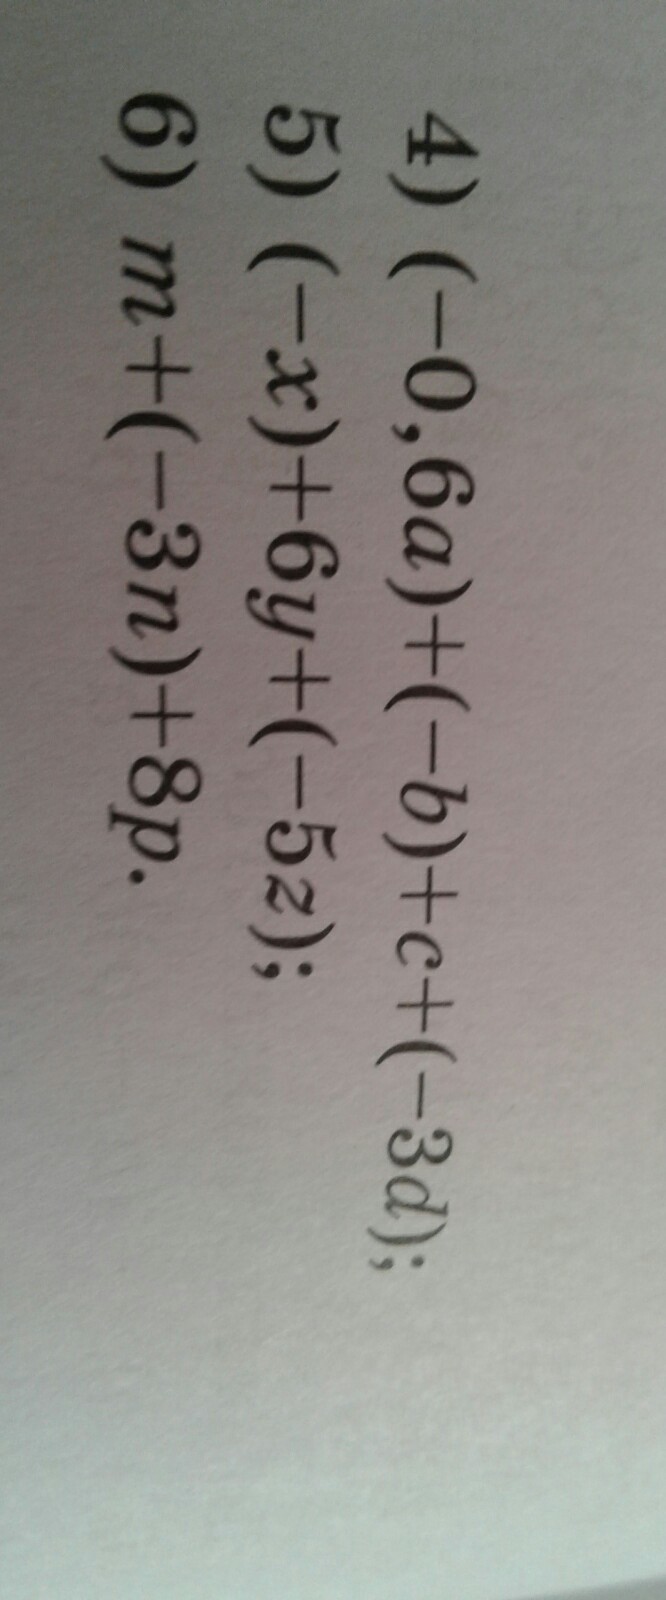 4) (−0,6a)+(−b)+c+(−3d);
5) (−x)+6y+(−5z);
6) m+(−3n)+8p.